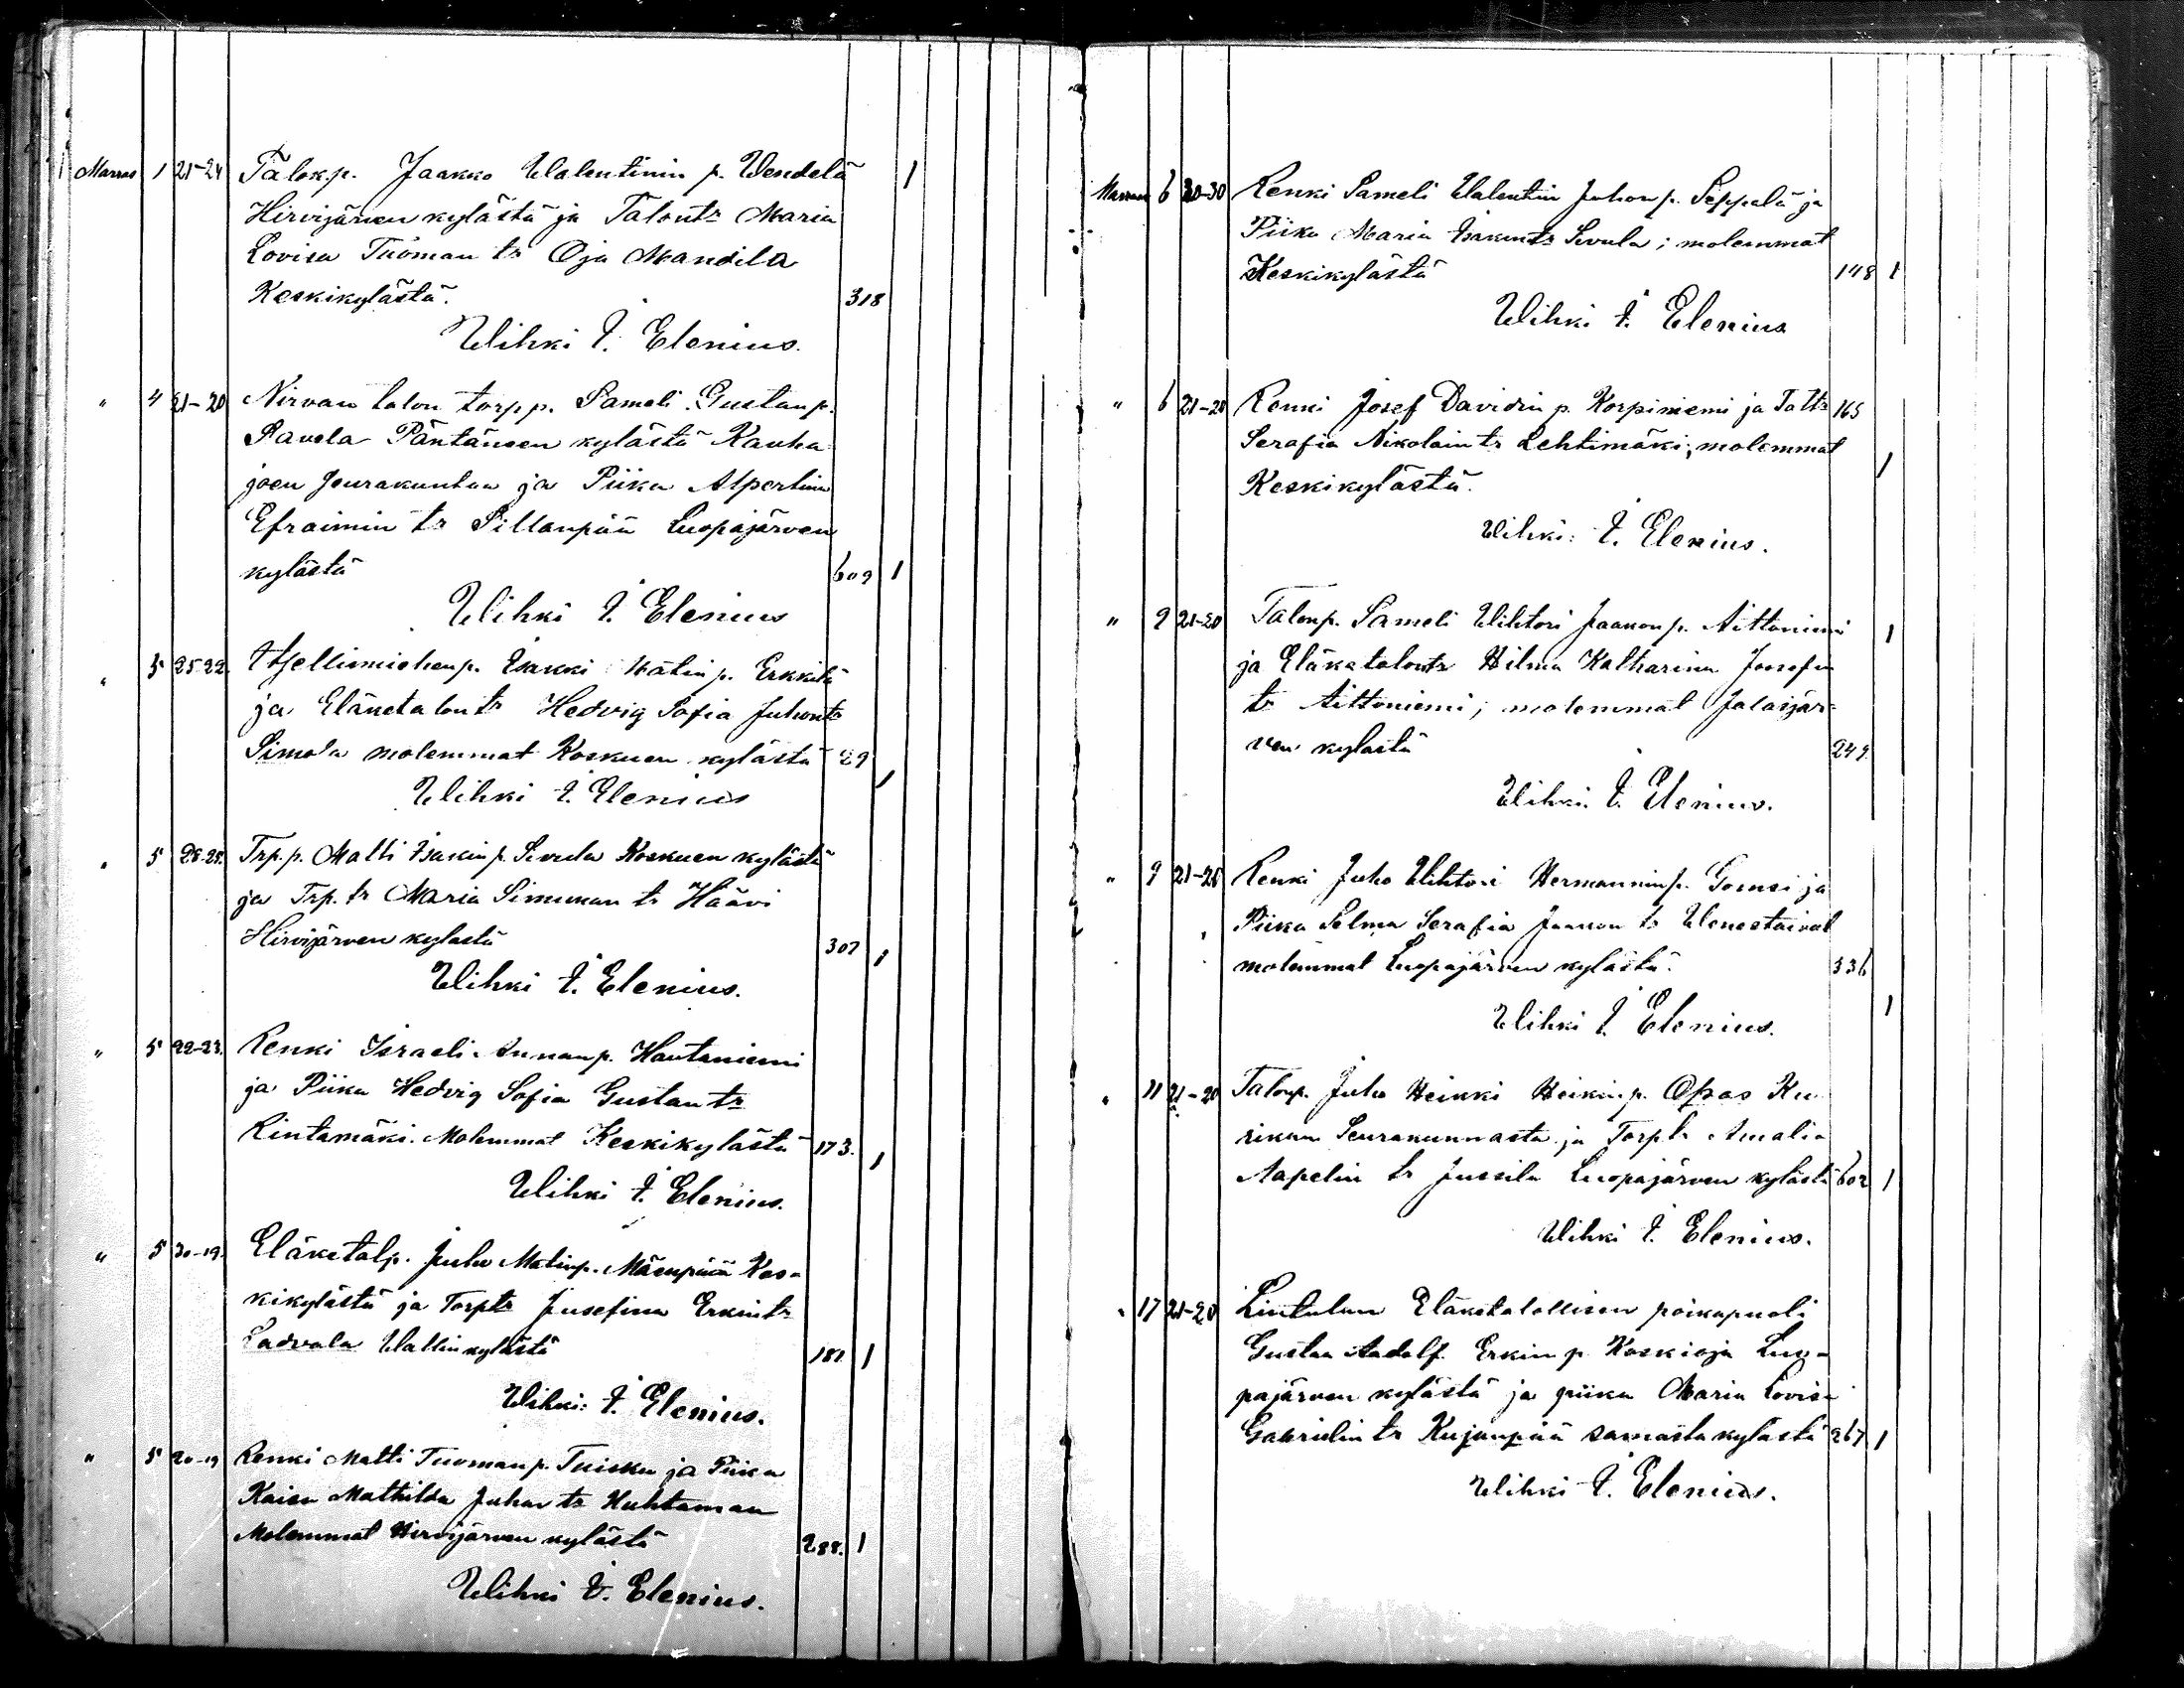 Marras 1 21-24 Talokp. Jaakko Walentinin p. Wendelä 1
Hirvijärven kylästä ja Talontr Maria
Lovisa Tuoman tr Oja Mandila
Keskikylästä. 318
Wihki I. Elenius.
" 4 21-20 Nirvan talon torpp. Sameli Gustanp.
Pavola Päntäneen kylästä Kauha
joen seurakuntaa ja Piika Alpertina
Efraimin tr Sillanpää Luopajärven
kylästä 609 1
Wihki I. Elenius
" 5 25-22. Itsellismiehenp. Isakki Matin p. Erkkilä
ja Eläketalontr Hedvig Sofia Juhontr
Simola molemmat Koskuen kylästä 29 1
Wihki I. Elenius
" 5 28-25. Trp.p. Matti Isakinp. Sivula Koskuen kylästä
ja Trp. tr Maria Simunan tr Häävi
Hirvijärven kylästä 307 1
Wihki I. Elenius.
" 5 22-23. Renki Israeli Annanp. Hautaniemi
ja Piika Hedvig Sofia Gustantr
Rintamäki. Molemmat Keskikylästä 173. 1
Wihki I. Elenius.
" 5 30-19. Eläketalp. Juho Matinp. Mäenpää Kes-
kikylästä ja Torptr Jusefina Erkintr
Ladvala Wallinkylästä 187 1
Wihki: I. Elenius.
" 5 20-19 Renki Matti Tuomanp. Tuisku ja Piika
Kaisa Mathilda Juhan tr Huhtaman
Molemmat Hirvijärven kylästä 288. 1
Wihki I. Elenius.
Marras 6 20-30 Renki Sameli Walentin Juhonp. Seppälä ja
Piika Maria Isakintr Sivula; molemmat
Keskikylästä 148 1
Wihki I. Elenius
" 6 21-20 Renki Josef Davidin p. Korpiniemi ja Taltr 165
Serafia Nikolain tr Lehtimäki; molemmat 1
Keskikylästä.
Wihki: I. Elenius.
" 9 21-20 Talonp. Sameli Wihtori Jaakonp. Aittoniemi 1
ja Eläketalontr Hilma Katharina Joosefin
tr Aittoniemi; molemmat Jalasjär-
ven kylästä 249
Wihki. I. Elenius.
" 9 21-26 Renki Juho Wihtori Hermanninp. Gomsi ja
Piika Selma Serafia Jaakon tr Wenestaival
molemmat Luopajärven kylästä. 336
Wihki I. Elenius. 1
" 11 21-20 Talonp. Juho Heikki Heikinp. Opas Ku-
rikan Seurakunnasta ja Torptr Amalia
Aapelin tr Jussila Luopajärven kylästä 602 1
Wihki I. Elenius.
" 17 21-20 Lintulan Eläketalollisen poikapuoli
Gustaa Aadolf. Erkin p. Koskioja Luo-
pajärven kylästä ja piika Maria Lovisa
Gabrielin tr Kujanpää samasta kylästä 267 1
Wihki I. Elenius.